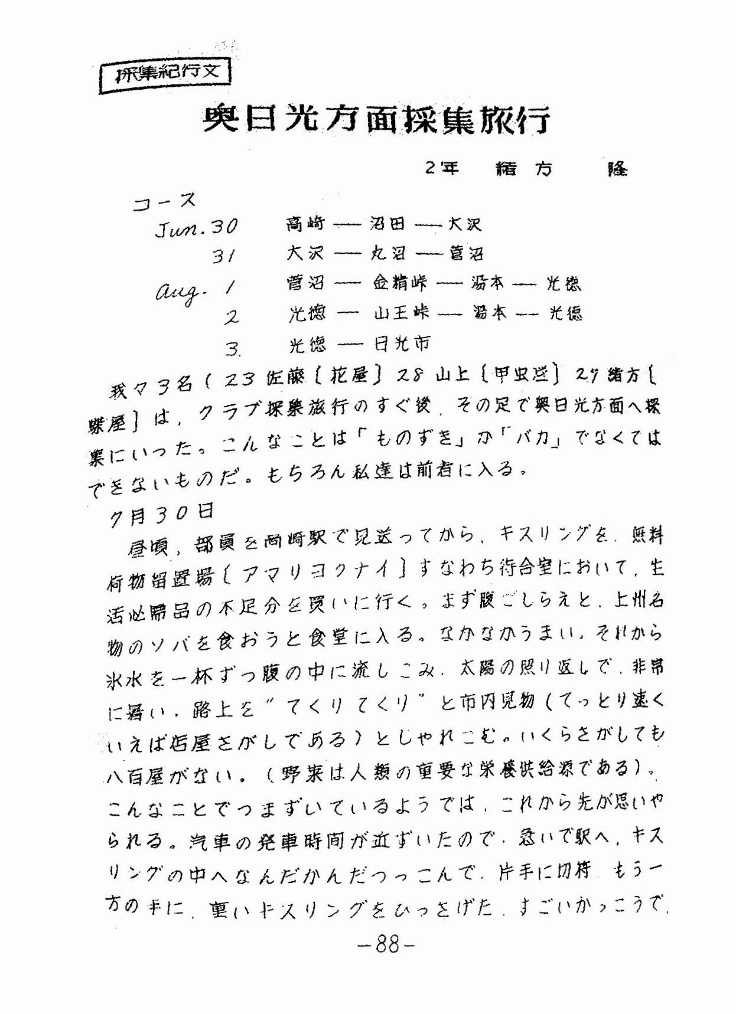 採集紀行文
奥日光方面採集旅行
2年 緒方 隆
コース
Jun.30 高崎 ― 沼田 ― 大沢
31 大沢 ― 丸沼 ― 菅沼
Aug. 1 菅沼 ― 金精峠 ― 湯本 ― 光徳
2 光徳 ― 山王峠 ― 湯本 ― 光徳
3. 光徳 ― 日光市
我々3名(23佐藤〔花屋〕28山上〔甲虫屋〕29緒方〔
蝶屋〕は,クラブ採集旅行のすぐ後,その足で奥日光方面へ採
集にいった。こんなことは「ものずき」か「バカ」でなくては
できないものだ。もちろん私達は前者に入る。
7月30日
昼頃,部員を高崎駅で見送ってから,キスリングを,無料
荷物留置場〔アマリヨクナイ〕すなわち待合室において,生
活必需品の不足分を買いに行く。まず腹ごしらえと,上州名
物のソバを食おうと食堂に入る。なかなかうまい。それから
氷水を一杯ずつ腹の中に流しこみ,太陽の照り返しで,非常
に暑い,路上を“てくりてくり”と市内見物(てっとり速く
いえば店屋さがしである)としゃれこむ。いくらさがしても
八百屋がない。(野菜は人類の重要な栄養供給源である)。
こんなことでつまずいているようでは,これから先が思いや
られる。汽車の発車時間が近ずいたので,急いで駅へ,キス
リングの中へなんだかんだつっこんで,片手に切符,もう一
方の手に,重いキスリングをひっさげた,すごいかっこうで,
-88-